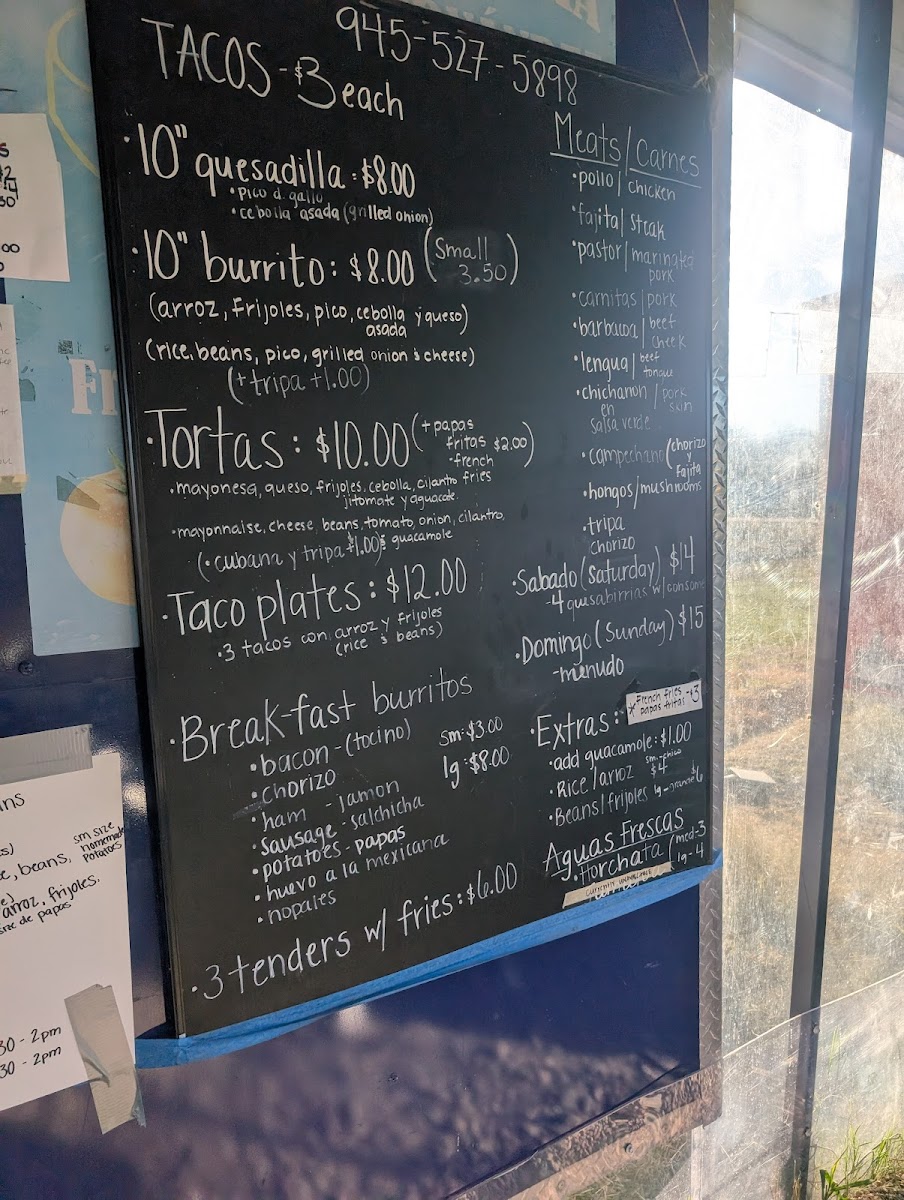 945-527-5898
TACOS-$3 each
·10" quesadilla: $8.00
·pico d. gallo
·cebolla asada (grilled onion)
·10" burrito: $8.00 (small 3.50)
(arroz, frijoles, pico, cebolla asada y queso)
(rice, beans, pico, grilled onion & cheese)
(+tripa +1.00)
·Tortas: $10.00 (+papas fritas $2.00)
-french fries
·mayonesa, queso, frijoles, cebolla, cilantro
jitomate y aguacate
·mayonnaise, cheese, beans, tomato, onion, cilantro,
& guacamole
(·cubana y tripa $1.00)
·Taco plates: $12.00
·3 tacos con arroz y frijoles
(rice & beans)
·Break-fast burritos
sm: $3.00
lg: $8.00
·bacon-(tocino)
·chorizo
·ham - jamon
·sausage - salchicha
·potatoes - papas
·huevo a la mexicana
·nopales
·3 tenders w/ fries: $6.00
Meats/Carnes
·pollo/chicken
·fajita/steak
·pastor/marinated pork
·carnitas/pork
·barbacoa/beef cheek
·lengua/beef tongue
·chicharron/pork skin
en
salsa verde
·campechano (chorizo y fajita
·hongos/mushrooms
·tripa
chorizo
·Sabado (Saturday) $14
-4 quesabirrias w/consome
·Domingo (Sunday) $15
-menudo
*French fries
papas fritas -$3
·Extras:
·add guacamole: $1.00
·Rice/arroz sm-chico $4
·Beans/frijoles lg-grande $6
Aguas Frescas
·Horchata (med-3
lg-4
currently unavailable
e, beans,
sm size
homemade
potatoes
arroz, frijoles,
de papas
30-2pm
30-2pm